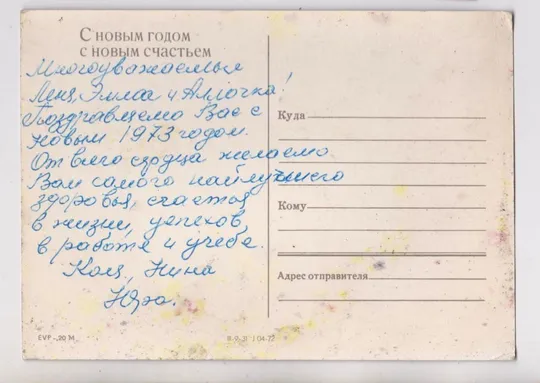 С новым годом
с новым счастьем
Многоуважаемые
Ленц, Эмма и Аллочка!
Поздравляемо Вас с
новым 1973 годом.
От всего сердца желаемо
Вам самого найлучшего
здоровья, счастья
в жизни, успехов
в работе и учебе.
Нина
Юра.
Куда
Кому
Адрес отправителя
EVP -,20 M